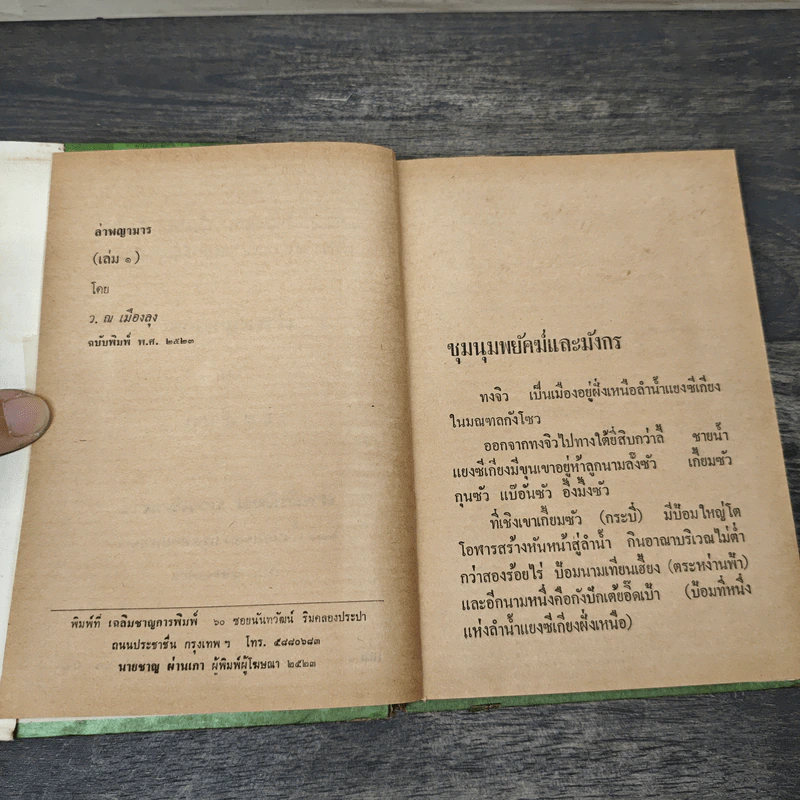 ล่าพญามาร
(เล่ม ๑)
โดย
ว. ณ เมืองลุง
ฉบับพิมพ์ พ.ศ. ๒๕๒๓
พิมพ์ที่ เฉลิมชาญการพิมพ์ ๖๐ ซอยนันทวัฒน์ ริมคลองประปา
ถนนประชาชื่น กรุงเทพ ฯ โทร. ๕๘๘๐๖๘๓
นายชาญ ผ่านเภา ผู้พิมพ์ผู้โฆษณา ๒๕๒๓
ชุมนุมพยัคฆ์และมังกร
ทงจิว เป็นเมืองอยู่ฝั่งเหนือลำน้ำแยงซีเกียง
ในมณฑลกังโซว
ออกจากทงจิวไปทางใต้ยี่สิบกว่าลี้ ชายน้ำ
แยงซีเกียงมีขุนเขาอยู่ห้าลูกนามลั้งซัว เกี้ยมซัว
กุนซัว แบ๊อันซัว อึ้งมึ้งซัว
ที่เชิงเขาเกี้ยมซัว (กระบี่) มีป้อมใหญ่โต
โอฬารสร้างหันหน้าสู่ลำน้ำ กินอาณาบริเวณไม่ต่ำ
กว่าสองร้อยไร่ ป้อมนามเทียนเฮี้ยง (ตระหง่านฟ้า)
และอีกนามหนึ่งคือกังปักเต้ยอิ๊ดเป้า (ป้อมที่หนึ่ง
แห่งลำน้ำแยงซีเกียงฝั่งเหนือ)